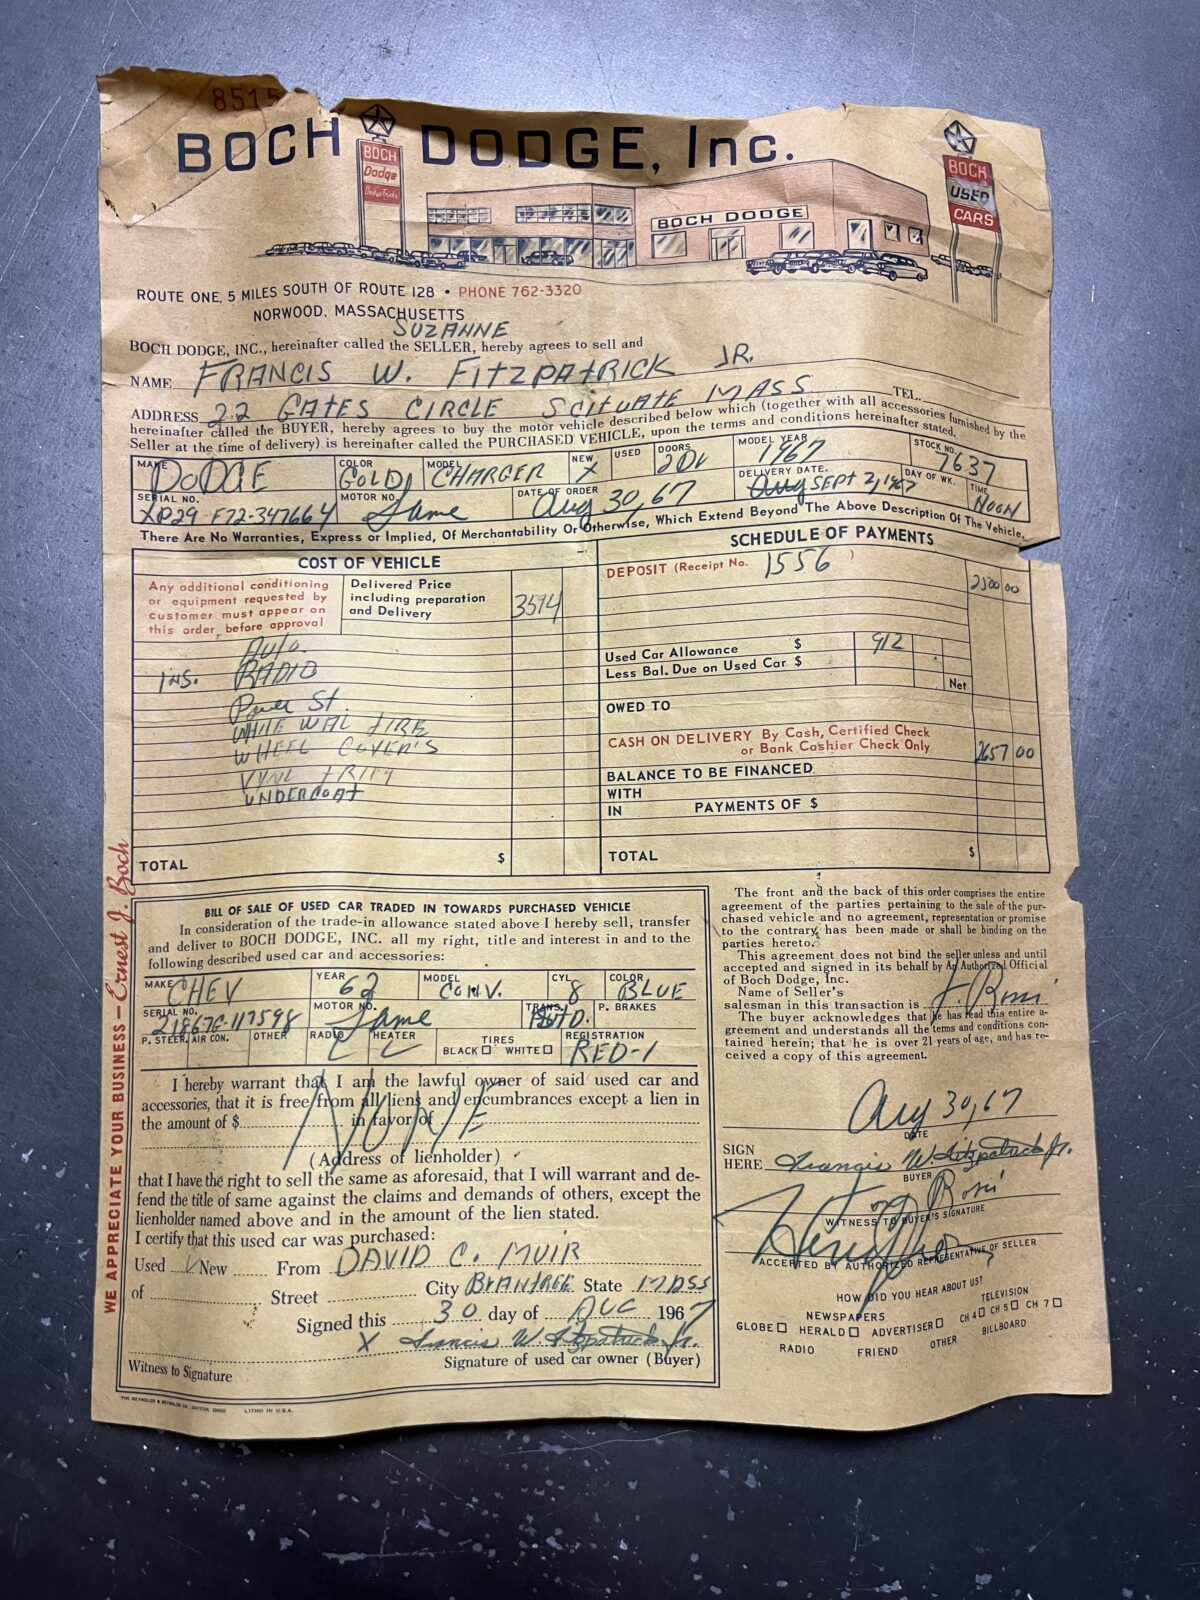 8515
BOCH DODGE, Inc.
BOCH
Dodge
Dodge Trucks
BOCH DODGE
BOCH
USED
CARS
ROUTE ONE, 5 MILES SOUTH OF ROUTE 128 • PHONE 762-3320
NORWOOD, MASSACHUSETTS
SUZANNE
BOCH DODGE, INC., hereinafter called the SELLER, hereby agrees to sell and
NAME FRANCIS W. FITZPATRICK JR.
ADDRESS 22 GATES CIRCLE SCITUATE MASS TEL.
hereinafter called the BUYER, hereby agrees to buy the motor vehicle described below which (together with all accessories furnished by the
Seller at the time of delivery) is hereinafter called the PURCHASED VEHICLE, upon the terms and conditions hereinafter stated.
MAKE DODGE COLOR GOLD MODEL CHARGER NEW X USED DOORS 2DR MODEL YEAR 1967 STOCK NO. 7637
SERIAL NO. XP29 F72-347664 MOTOR NO. Same DATE OF ORDER Aug 30, 67 DELIVERY DATE Aug SEPT 2, 1967 DAY OF WK. TIME NOON
There Are No Warranties, Express or Implied, Of Merchantability Or Otherwise, Which Extend Beyond The Above Description Of The Vehicle.
COST OF VEHICLE
Any additional conditioning
or equipment requested by
customer must appear on
this order, before approval
Delivered Price
including preparation
and Delivery
3594
Auto.
INS. RADIO
Power St.
WHITE WAL TIRE
WHEEL COVER'S
VYNL TRIM
UNDERCOAT
TOTAL $
SCHEDULE OF PAYMENTS
DEPOSIT (Receipt No. 1556 )
2500 00
Used Car Allowance $ 912
Less Bal. Due on Used Car $
Net
OWED TO
CASH ON DELIVERY By Cash, Certified Check
or Bank Cashier Check Only
2657 00
BALANCE TO BE FINANCED
WITH
IN PAYMENTS OF $
TOTAL $
WE APPRECIATE YOUR BUSINESS—Ernest J. Boch
BILL OF SALE OF USED CAR TRADED IN TOWARDS PURCHASED VEHICLE
In consideration of the trade-in allowance stated above I hereby sell, transfer
and deliver to BOCH DODGE, INC. all my right, title and interest in and to the
following described used car and accessories:
MAKE CHEV YEAR 62 MODEL CONV. CYL 8 COLOR BLUE
SERIAL NO. 21867G-117598 MOTOR NO. Same TRANS. P. BRAKES
P. STEER. AIR CON. OTHER RADIO HEATER TIRES BLACK WHITE REGISTRATION RED-1
I hereby warrant that I am the lawful owner of said used car and
accessories, that it is free from all liens and encumbrances except a lien in
the amount of $ in favor of
NONE
(Address of lienholder)
that I have the right to sell the same as aforesaid, that I will warrant and de-
fend the title of same against the claims and demands of others, except the
lienholder named above and in the amount of the lien stated.
I certify that this used car was purchased:
Used New From DAVID C. MUIR
of Street City BRAINTREE State MASS
Signed this 30 day of AUG 1967
X Francis W. Fitzpatrick Jr.
Signature of used car owner (Buyer)
Witness to Signature
The front and the back of this order comprises the entire
agreement of the parties pertaining to the sale of the pur-
chased vehicle and no agreement, representation or promise
to the contrary has been made or shall be binding on the
parties hereto.
This agreement does not bind the seller unless and until
accepted and signed in its behalf by An Authorized Official
of Boch Dodge, Inc.
Name of Seller's
salesman in this transaction is J. Rossi
The buyer acknowledges that he has read this entire a-
greement and understands all the terms and conditions con-
tained herein; that he is over 21 years of age, and has re-
ceived a copy of this agreement.
Aug 30, 67
DATE
SIGN
HERE Francis W. Fitzpatrick Jr.
BUYER
Rossi
WITNESS TO BUYER'S SIGNATURE
ACCEPTED BY AUTHORIZED REPRESENTATIVE OF SELLER
HOW DID YOU HEAR ABOUT US?
NEWSPAPERS TELEVISION
GLOBE HERALD ADVERTISER CH 4 CH 5 CH 7
RADIO FRIEND OTHER BILLBOARD
THE REYNOLDS & REYNOLDS CO. DAYTON, OHIO LITHO IN U.S.A.